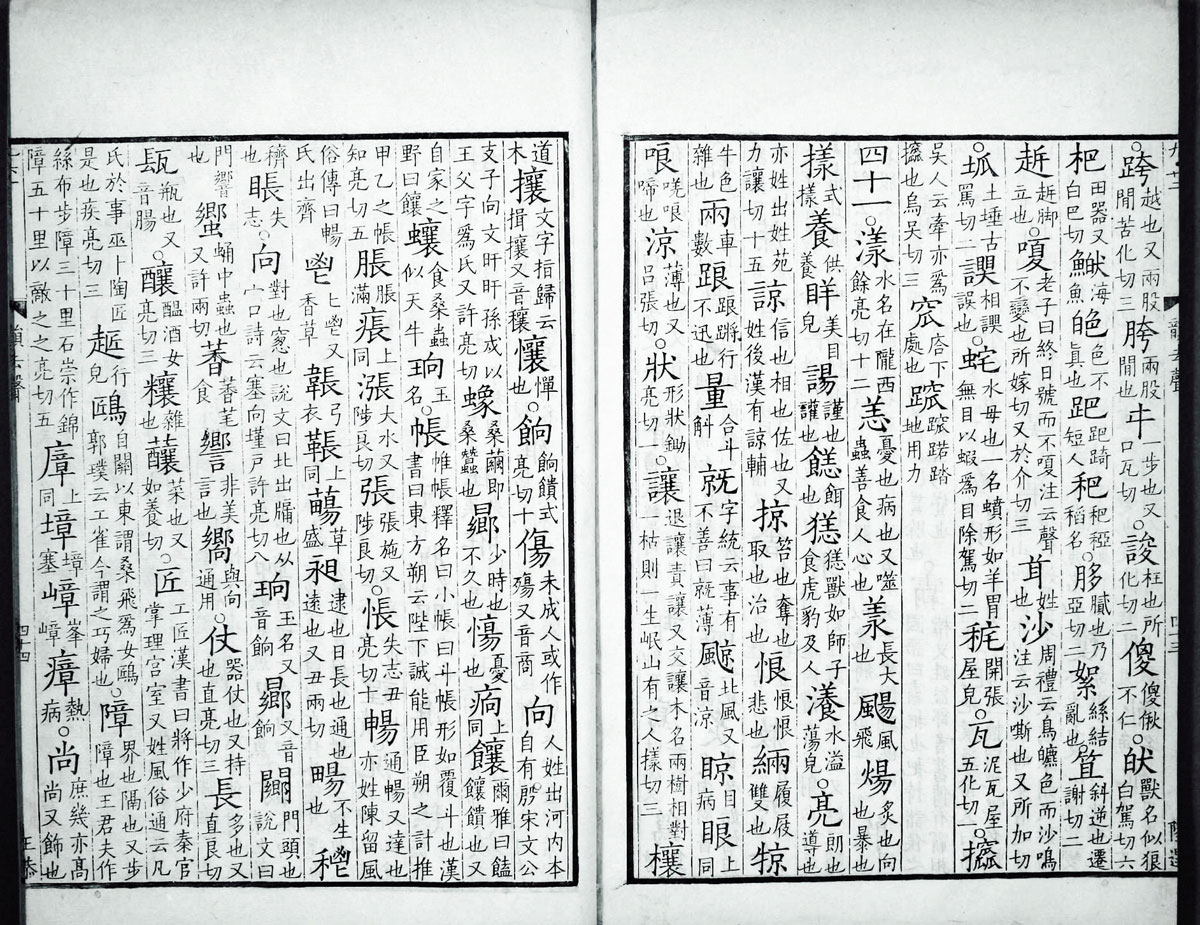 跨越也又兩股間苦化切三胯兩股間也㐄一步也又口瓦切○誜枉也所化切二傻傻偢不仁○獸名似狼白駕切六
杷田器又白巴切海魚皅色不真也跁跁踦短人䆉䆉稏稻名○膩也乃亞切二絮絲結亂也○笡斜逆也遷謝切二
跅脚立也嗄老子曰終日號而不嗄注云聲不變也所嫁切又於介切三姓也沙周禮云鳥皫色而沙鳴注云沙嘶也又所加切
○坬土埵古罵切二諣相誤也○䖳水母也一名蟦形如羊胃無目以蝦爲目除駕切二開張屋皃○瓦泥瓦屋五化切一○攨
吳人云牽亦爲攨也烏吳切三窊窊下處也踏地用力
四十一○漾水名在隴西餘亮切十二恙憂也病也又噬蟲善食人心也羕長大也颺風飛煬炙也向也暴也
樣式樣養供養眻美目皃讙也餌也獇獇獸如師子食虎豹及人瀁水溢蕩皃○亮導也
亦姓出姓苑力讓切十五諒信也相也佐也又姓後漢有諒輔掠笞也奪也取也治也悢悢悢悲也緉履屐雙也㹁
牛色雜也兩車數踉踉蹡行不迅也量合斗斛就字統云事有不善曰就薄飈北風又音涼晾目病眼上同
哴唴哴啼也涼薄也又呂張切○狀形狀鋤亮切一○讓退讓責讓又交讓木名兩樹相對一枯則一生岷山有之人樣切三欀
道木攘文字指歸云揖攘又音穰懹憚也○餉餉饋式亮切十傷未成人或作殤又音商向人姓出河內本自有殷宋文公
支子向文旰旰孫戌以王父字爲氏又許亮切蠁桑繭即桑蠶也曏少時也不久也愓憂也上同饟爾雅曰饁饟饋也又
自家之野曰饟蠰食桑蟲似天牛珦玉名○帳帷帳釋名曰小帳曰斗帳形如覆斗也漢書曰東方朔云陛下誠能用臣朔之計推
甲乙之帳知亮切五脹脹滿痮上同漲大水又陟良切張張施又陟良切○悵失志丑亮切十暢通暢又達也亦姓陳留風
俗傳曰暢氏出齊鬯匕鬯又香草韔弓衣上同草盛昶逮也日長也通也遠也又丑兩切畼不生也
穧也䀶失志○向對也窻也說文曰北出牖也从宀口詩云塞向墐户許亮切八珦玉名又音餉曏又音餉門頭也說文曰
門響也蠁蛹中蟲也又許兩切薌薌芼食非美言也嚮與向通用○仗器仗也又持也直亮切三長多也又直良切
瓺瓶也又音腸○釀醞酒女亮切三雜也菜也又如養切○匠工匠漢書曰將作少府秦官掌理宮室又姓風俗通云凡
氏於事巫卜陶匠是也疾亮切三行皃鴎自關以東謂桑飛爲女鴎郭璞云工雀今謂之巧婦也○障界也隔也又步障也王君夫作
絲布步障三十里石崇作錦障五十里以敵之之亮切五上同墇墇塞嶂峯嶂瘴熱病○尚庶幾亦高尚又飾也